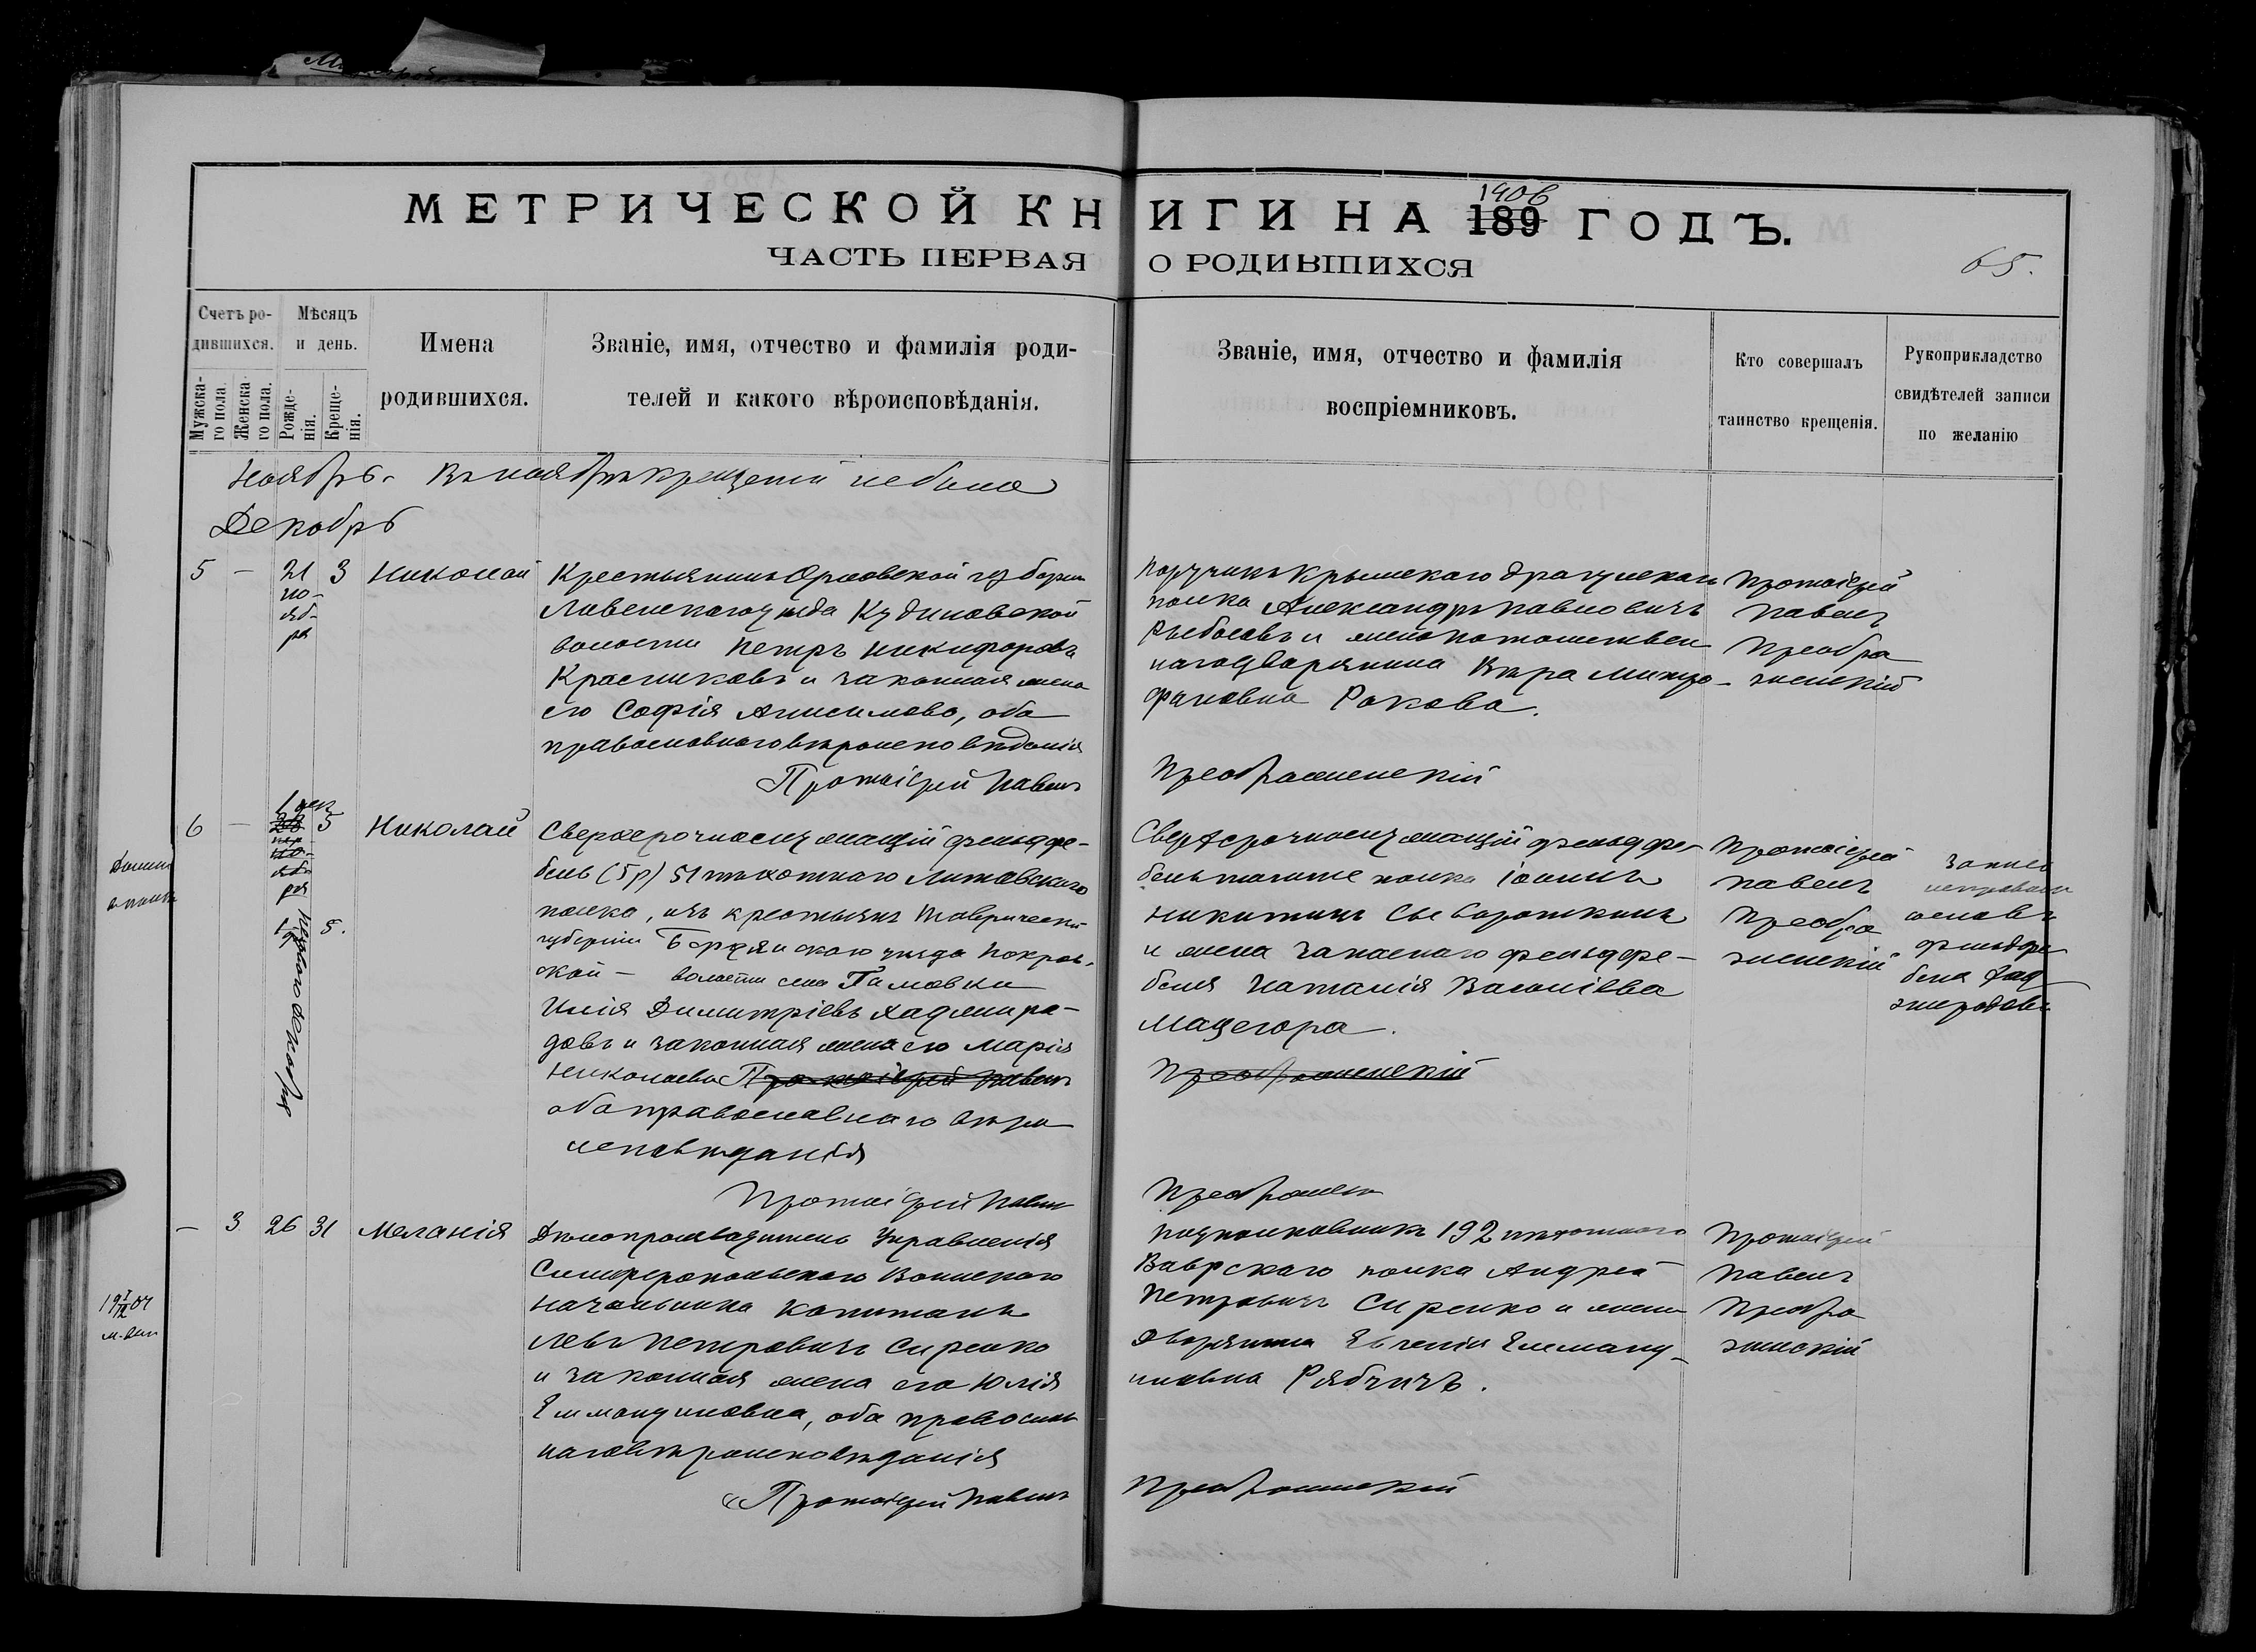 МЕТРИЧЕСКОЙ КНИГИ НА 189 1906 ГОДЪ.
ЧАСТЬ ПЕРВАЯ О РОДИВШИХСЯ
65.
Счетъ ро-
дившихся.
Мужска-
го пола.
Женска-
го пола.
Мѣсяцъ
и день.
Рожде-
нія.
Креще-
нія.
Имена
родившихся.
Званіе, имя, отчество и фамилія роди-
телей и какого вѣроисповѣданія.
Званіе, имя, отчество и фамилія
воспріемниковъ.
Кто совершалъ
таинство крещенія.
Рукоприкладство
свидѣтелей записи
по желанію
Ноябрь. Въ ноябрѣ крещеній не было
Декабрь
5 — 21 3 Николай
но-
яб-
ря
Крестьянинъ Орловской губерніи
Ливенскаго уѣзда Кудиновской
волости Петръ Никифоровъ
Красниковъ и законная жена
его Софія Анисимова, оба
православнаго вѣроисповѣданія
Протоіерей Павелъ
Поручикъ Крымскаго драгунскаго
полка Александръ Павловичъ
и жена потомствен
наго дворянина Вѣра Митро-
фановна Ракова.
Преображенскій
Протоіерей
Павелъ
Преобра
женскій
6 — 1 дек 5 Николай
ноя
ря
1 5.
перваго декабря
Сверхсрочнослужащій фельдфе-
бель (5 р) 51 пѣхотнаго Литовскаго
полка, изъ крестьянъ Таврической
губерніи Бердянскаго уѣзда Покров-
ской — волости села Гамовки
Илія Димитріевъ Хаджира-
довъ и законная жена его Марія
Николаева Протоіерей Павелъ
оба православнаго вѣро
исповѣданія
Протоіерей Павелъ
Сверхсрочнослужащій фельдфе-
бель того же полка Іоаннъ
Никитинъ Сывороткинъ
и жена запаснаго фельдфе-
беля Наталія Василіева
Мацегора.
Преображенскій
Преображен
Протоіерей
Павелъ
Преобра
женскій
Запись
фельдфе
беля
— 3 26 31 Меланія
Дѣлопроизводитель Управленія
Симферопольскаго Воинскаго
Начальника Капитанъ
Левъ Петровичъ Сиренко
и законная жена его Юлія
оба православ
наго вѣроисповѣданія
Протоіерей Павелъ
Подполковникъ 192 пѣхотнаго
Ваврскаго полка Андрей
Петровичъ Сиренко и жена
дворянина Евгенія
новна Рябчичъ.
Преображенскій
Протоіерей
Павелъ
Преобра
женскій